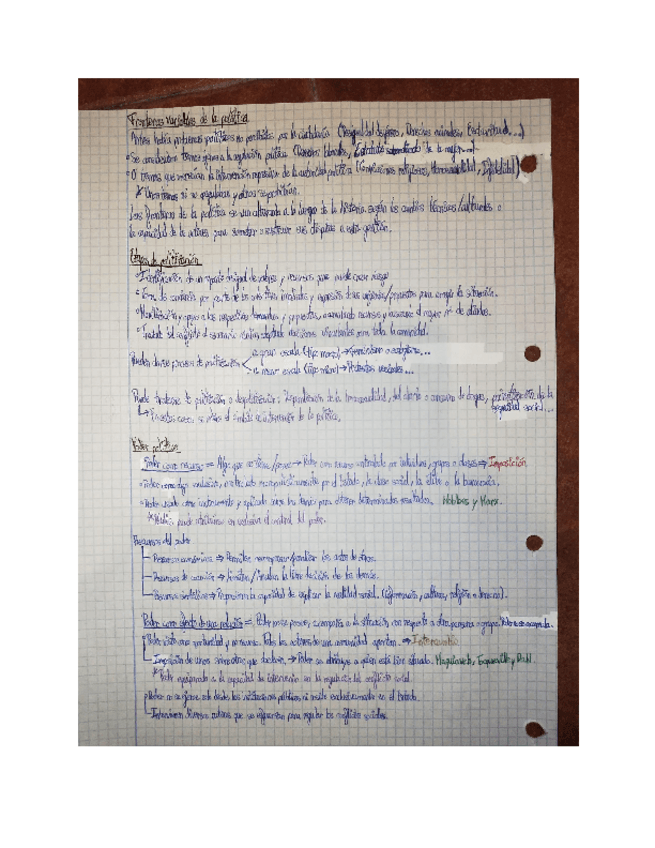 Fronteras variables de la política
Antes había problemas políticos no permitidos por la ciudadanía (Desigualdad de género, Derechos
Se consideraban temas ajenos a la regulación política (Derechos laborales, de la mujer...)
O temas que merecían la intervención represiva de la autoridad política (Convicciones religiosas, Homosexualidad,
Las fronteras de la política se van alterando a lo largo de la historia según los cambios técnicos/culturales o
la capacidad de los actores para someter o sustraer sus disputas a esta gestión.
Etapas de politización
Identificación de un reparto desigual de valores y recursos que puede crear riesgo
Toma de conciencia por parte de los colectivos implicados y expresión de sus exigencias/propuestas para corregir la situación.
Movilización y apoyo a las respectivas demandas y propuestas, acumulando recursos y buscando el mayor nº de aliados.
Traslado del conflicto al escenario político adoptando decisiones vinculantes para toda la comunidad.
Pueden darse procesos de politización
a gran escala (Tipo macro) → feminismo o ecologismo...
a menor escala (Tipo micro) → Protestas vecinales...
Puede tratarse de politización o despolitización: Despenalización de la homosexualidad, del aborto o consumo de drogas, privatización de la
seguridad social...
En estos casos se reduce el ámbito de intervención de la política.
Poder político
Poder como recurso = Algo que se tiene/posee → Poder como recurso controlado por individuos, grupos o clases ⇒ Imposición
Poder como algo exclusivo, puede ser monopolísticamente por el Estado, la clase social, la élite o la burocracia.
Poder usado como instrumento y aplicado sobre los demás para obtener determinados resultados. Hobbes y Marx.
Recursos del poder
Recursos económicos ⇒ Permiten recompensar/penalizar los actos de otros.
Recursos de coacción ⇒ Limitan/Anulan la libre decisión de los demás.
Recursos simbólicos ⇒ Proporcionan la capacidad de explicar la realidad social. (Información, cultura, religión o
Poder como efecto de una relación = Poder no se posee, acompaña a la situación con respecto a otra persona o grupo. Poder se comparte.
Poder visto como oportunidad y no recurso. Todos los actores de una comunidad aportan. ⇒
Poder se atribuye a quien esté bien situado. Maquiavelo, Tocqueville y Dahl.
Poder equiparado a la capacidad de intervención en la regulación del conflicto social.
Poder no se ejerce solo desde las instituciones políticas ni reside exclusivamente en el Estado.
Intervienen diversos actores que se esfuerzan para regular los conflictos sociales.